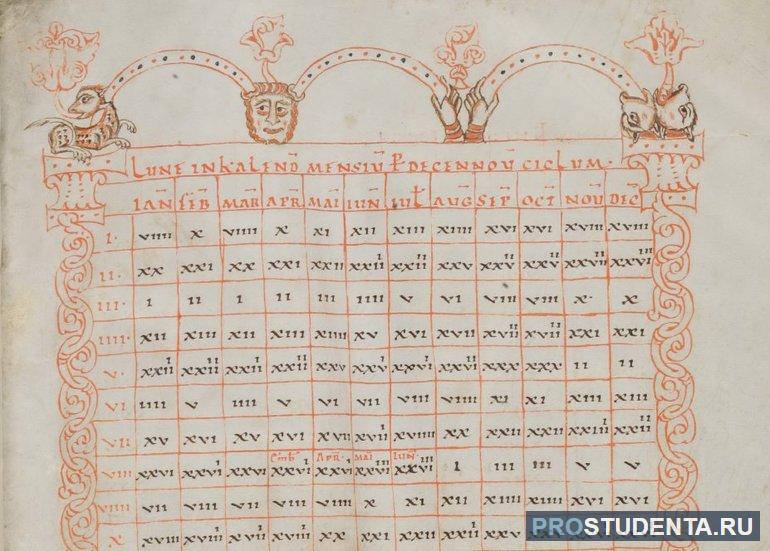 LUNE IN KALEND MENSIU P DECENNOU CICLUM.
IAN FEB MAR APR MAI IUN IUL AUG SEP OCT NOU DEC
I. VIIII X VIIII X XI XII XIII XIIII XVI XVI XVIII XVIII
II. XX XXI XX XXI XXII XXIII XXIIII XXV XXVII XXVII XXVIIII
III. I II I II III IIII V VI VIII VIII X X
IIII. XII XIII XII XIII XIIII XV XVI XVII XXI XXI
V. XXIII XXIIII XXIII XXIIII XXV XXVI XXVII XXX XXX II II
VI IIII V IIII V VI VII VIII VIIII XI XI XIII XIII
VII XV XVI XV XVI XVII XVIII XVIIII XX XXII XXII XXIIII XXIIII
EMB APR MAI IUN
VIII XXVI XXVII XXVI I III III V V
VIIII VII VIII VII VIII VIIII X XI XII XIIII XIIII XVI XVI
X XVIII XVIIII XVIII XVIIII XX XXI XXII
PROSTUDENTA.RU